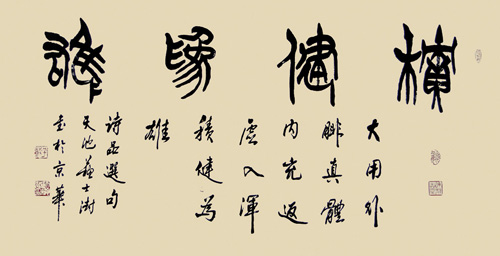 積健為雄
大用外
腓真體
內充返
虛入渾
積健為
雄
詩品選句
天池蘇士澍
書於京華